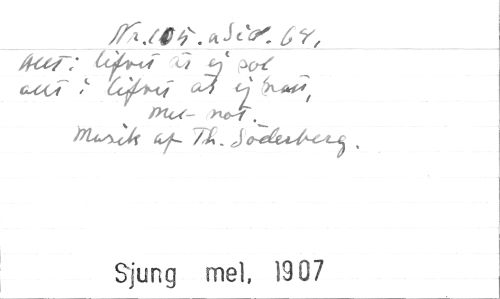 Nr. 105. a Sid. 64,
Allt i lifvet är ej sol
allt i lifvet är ej natt,
mel- not.
Musik af Th. Söderberg.
Sjung mel, 1907